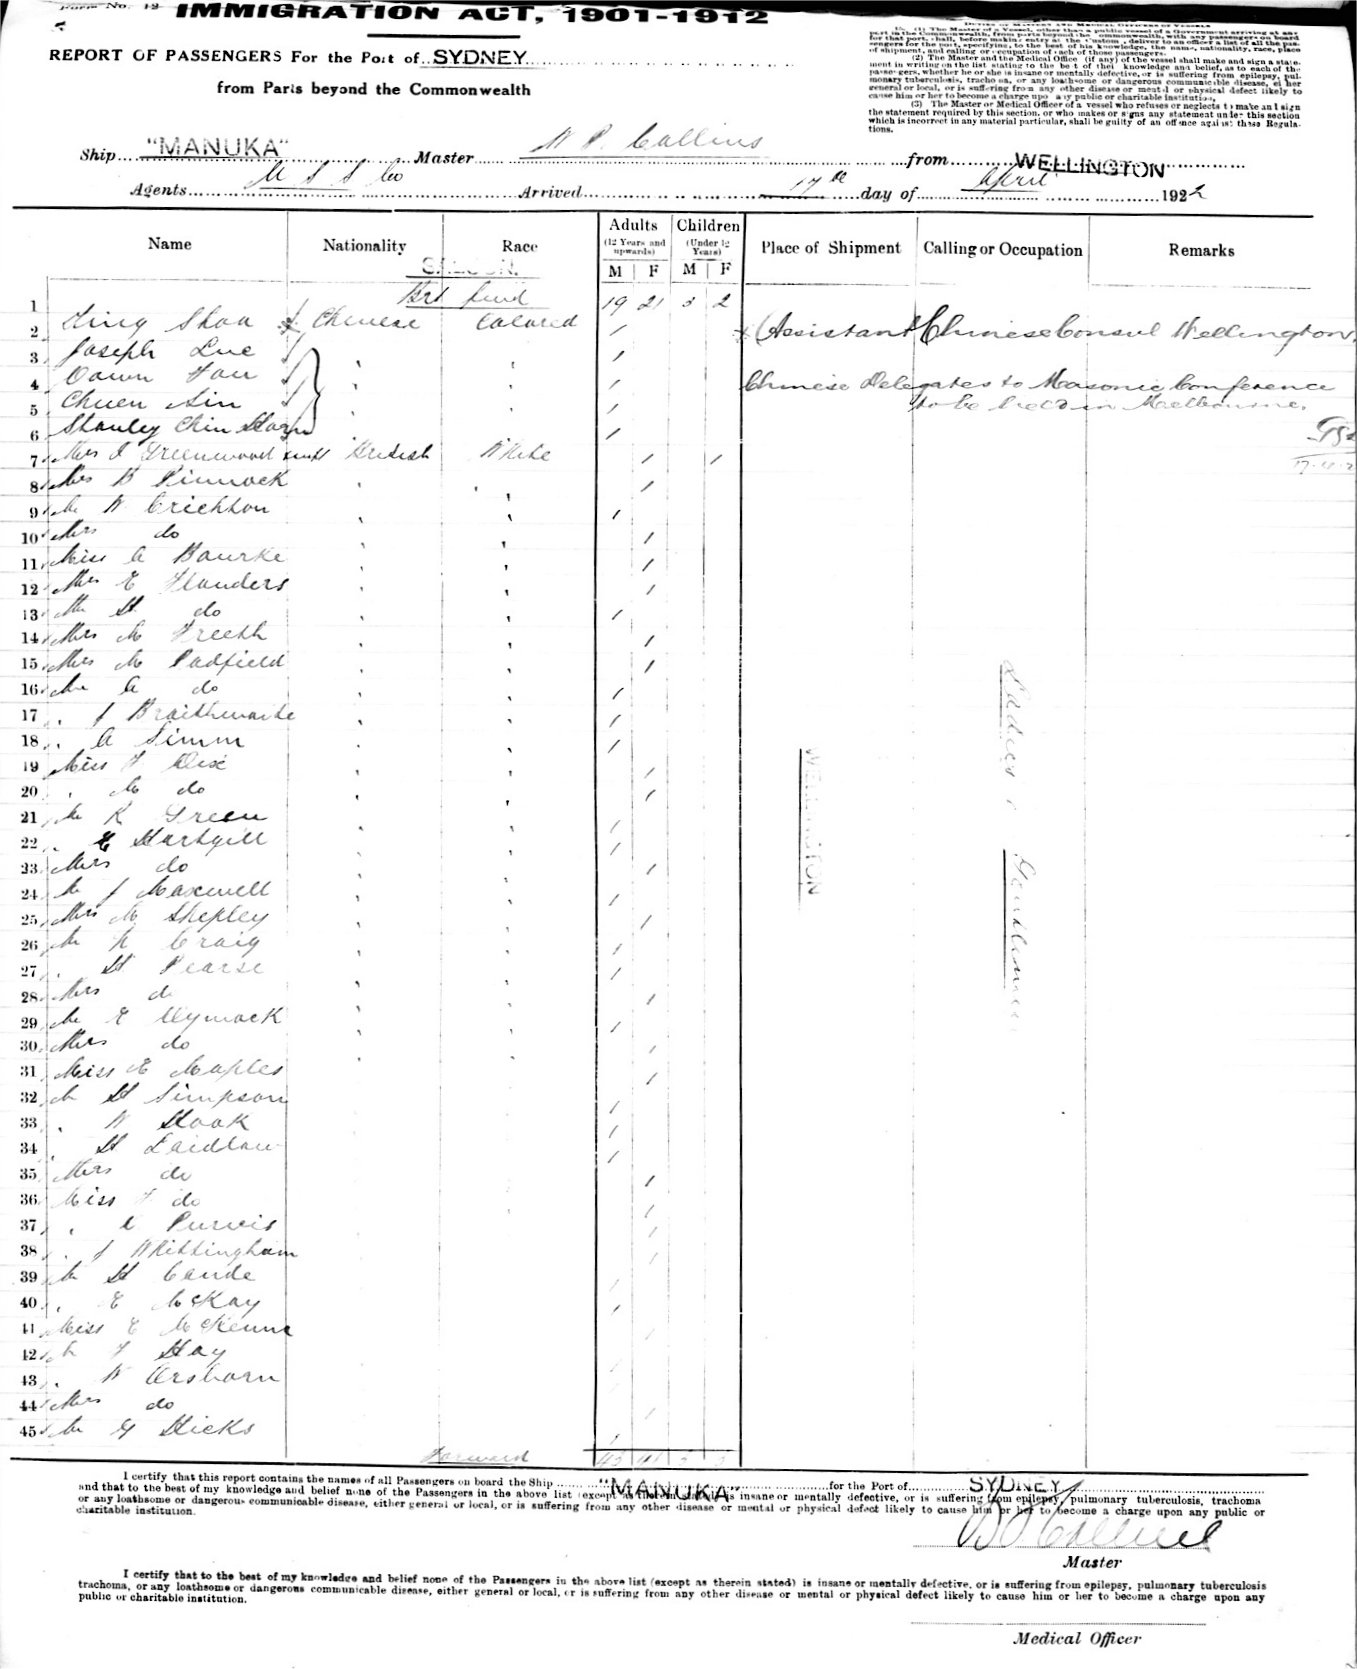 Form No. 12
IMMIGRATION ACT, 1901-1912
REPORT OF PASSENGERS For the Port of SYDNEY
from Parts beyond the Commonwealth
(2) The Master and the Medical Office (if any) of the vessel shall make and sign a state-
ment in writing on the list stating to the best of their knowledge and belief, as to each of the
passengers, whether he or she is insane or mentally defective, or is suffering from epilepsy, pul-
monary tuberculosis, trachoma, or any loathsome or dangerous communicable disease, either
general or local, or is suffering from any other disease or mental or physical defect likely to
cause him or her to become a charge upon any public or charitable institution.
(3) The Master or Medical Officer of a vessel who refuses or neglects to make and sign
the statement required by this section, or who makes or signs any statement under this section
which is incorrect in any material particular, shall be guilty of an offence against these Regula-
tions.
Ship "MANUKA" Master W P Collins from WELLINGTON
Agents U S S Co Arrived 17th day of April 1922
Name Nationality Race Adults (12 Years and upwards) M F Children (Under 12 Years) M F Place of Shipment Calling or Occupation Remarks
SALOON.
1 Brt fwd 19 21 3 2
2 Shaa Chinese Colored / x (Assistant Chinese Consul Wellington.
3 Joseph Lue /
4 / Chinese Delegates to Masonic Conference
5 Chuen / to be held in Melbourne.
6 Stanley Chin /
7 Mrs J Greenwood & inft British White / /
8 Mrs B Pinnock /
9 Mr W Crichton /
10 Mrs do /
11 Miss A Bourke /
12 Mrs E Flanders /
13 Mr H do /
14 Mrs M Freeth /
15 Mrs M Padfield /
16 Mr A do /
17 " J Braithwaite /
18 " A Simm /
19 Miss F Dixi /
20 " M do /
21 Mr R Green /
22 " E Hartgill /
23 Mrs do /
24 Mr J Maxwell /
25 Mrs M Shepley /
26 Mr N Craig /
27 " H Pearse /
28 Mrs do /
29 Mr E Wymack /
30 Mrs do /
31 Miss E Maples /
32 Mr H Simpson /
33 " W Hook /
34 " H Laidlaw /
35 Mrs do /
36 Miss F do /
37 " Purvis /
38 " J Whittingham /
39 Mr H /
40 " E McKay /
41 Miss E McKenna /
42 Mr F Hay
43 " W Orsborn
44 Mrs do /
45 Mr G Hicks /
WELLINGTON
Ladies & Gentlemen
Forward
I certify that this report contains the names of all Passengers on board the Ship "MANUKA" for the Port of SYDNEY
and that to the best of my knowledge and belief none of the Passengers in the above list (except as therein stated) is insane or mentally defective, or is suffering from epilepsy, pulmonary tuberculosis, trachoma
or any loathsome or dangerous communicable disease, either general or local, or is suffering from any other disease or mental or physical defect likely to cause him or her to become a charge upon any public or
charitable institution.
W P Collins
Master
I certify that to the best of my knowledge and belief none of the Passengers in the above list (except as therein stated) is insane or mentally defective, or is suffering from epilepsy, pulmonary tuberculosis
trachoma, or any loathsome or dangerous communicable disease, either general or local, or is suffering from any other disease or mental or physical defect likely to cause him or her to become a charge upon any
public or charitable institution.
Medical Officer